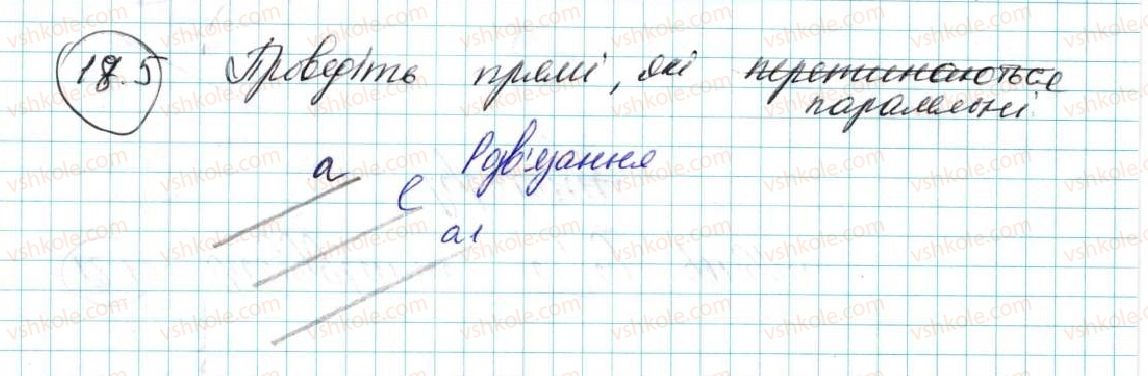 18.5 Проведіть прямі, які перетинаються
паралельні.
Розв'язання
a
l
a1